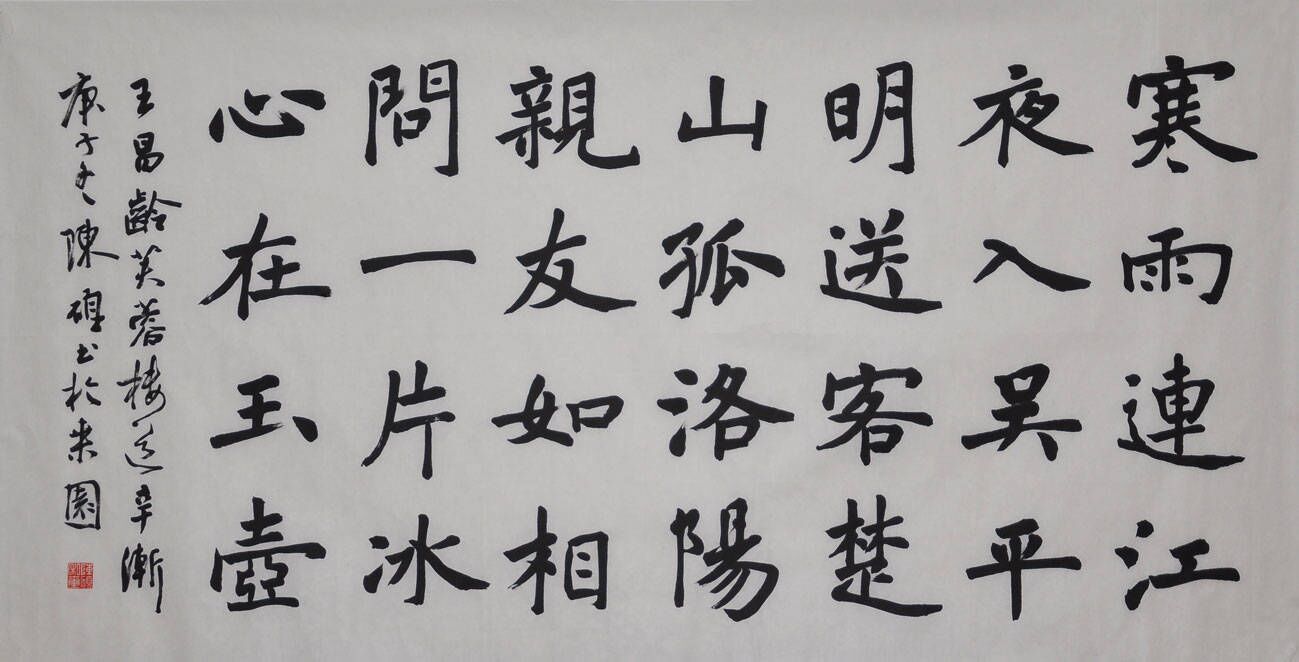 寒雨連江
夜入吴平
明送客楚
山孤洛陽
親友如相
問一片冰
心在玉壺
王昌齡芙蓉樓送辛漸
庚子冬陳書於園